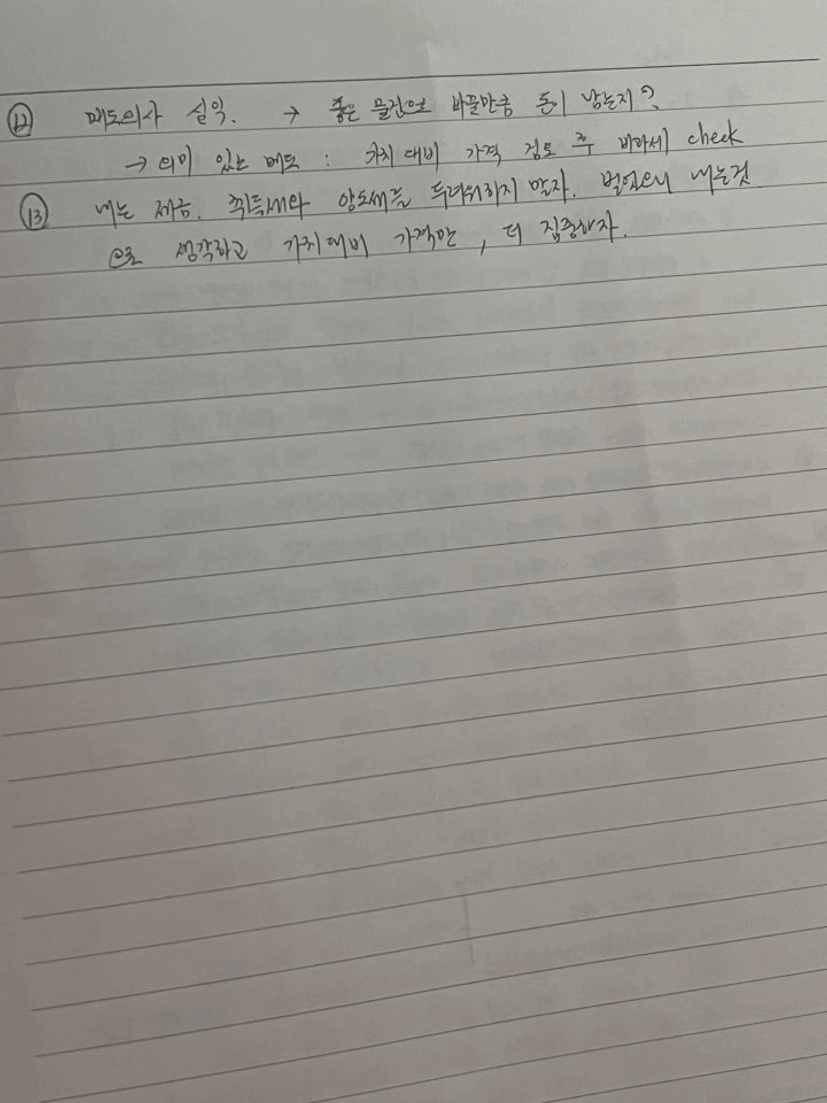 ⑫ 매도의사 실익. → 좋은 물건으로 바꿀만큼 돈이 남는지?
→ 의미 있는 매도 : 가치 대비 가격 검토 후 비과세 check
⑬ 내는 세금. 취득세와 양도세를 두려워하지 말자. 벌었으니 내는것
으로 생각하고 가치대비 가격만, 더 집중하자.